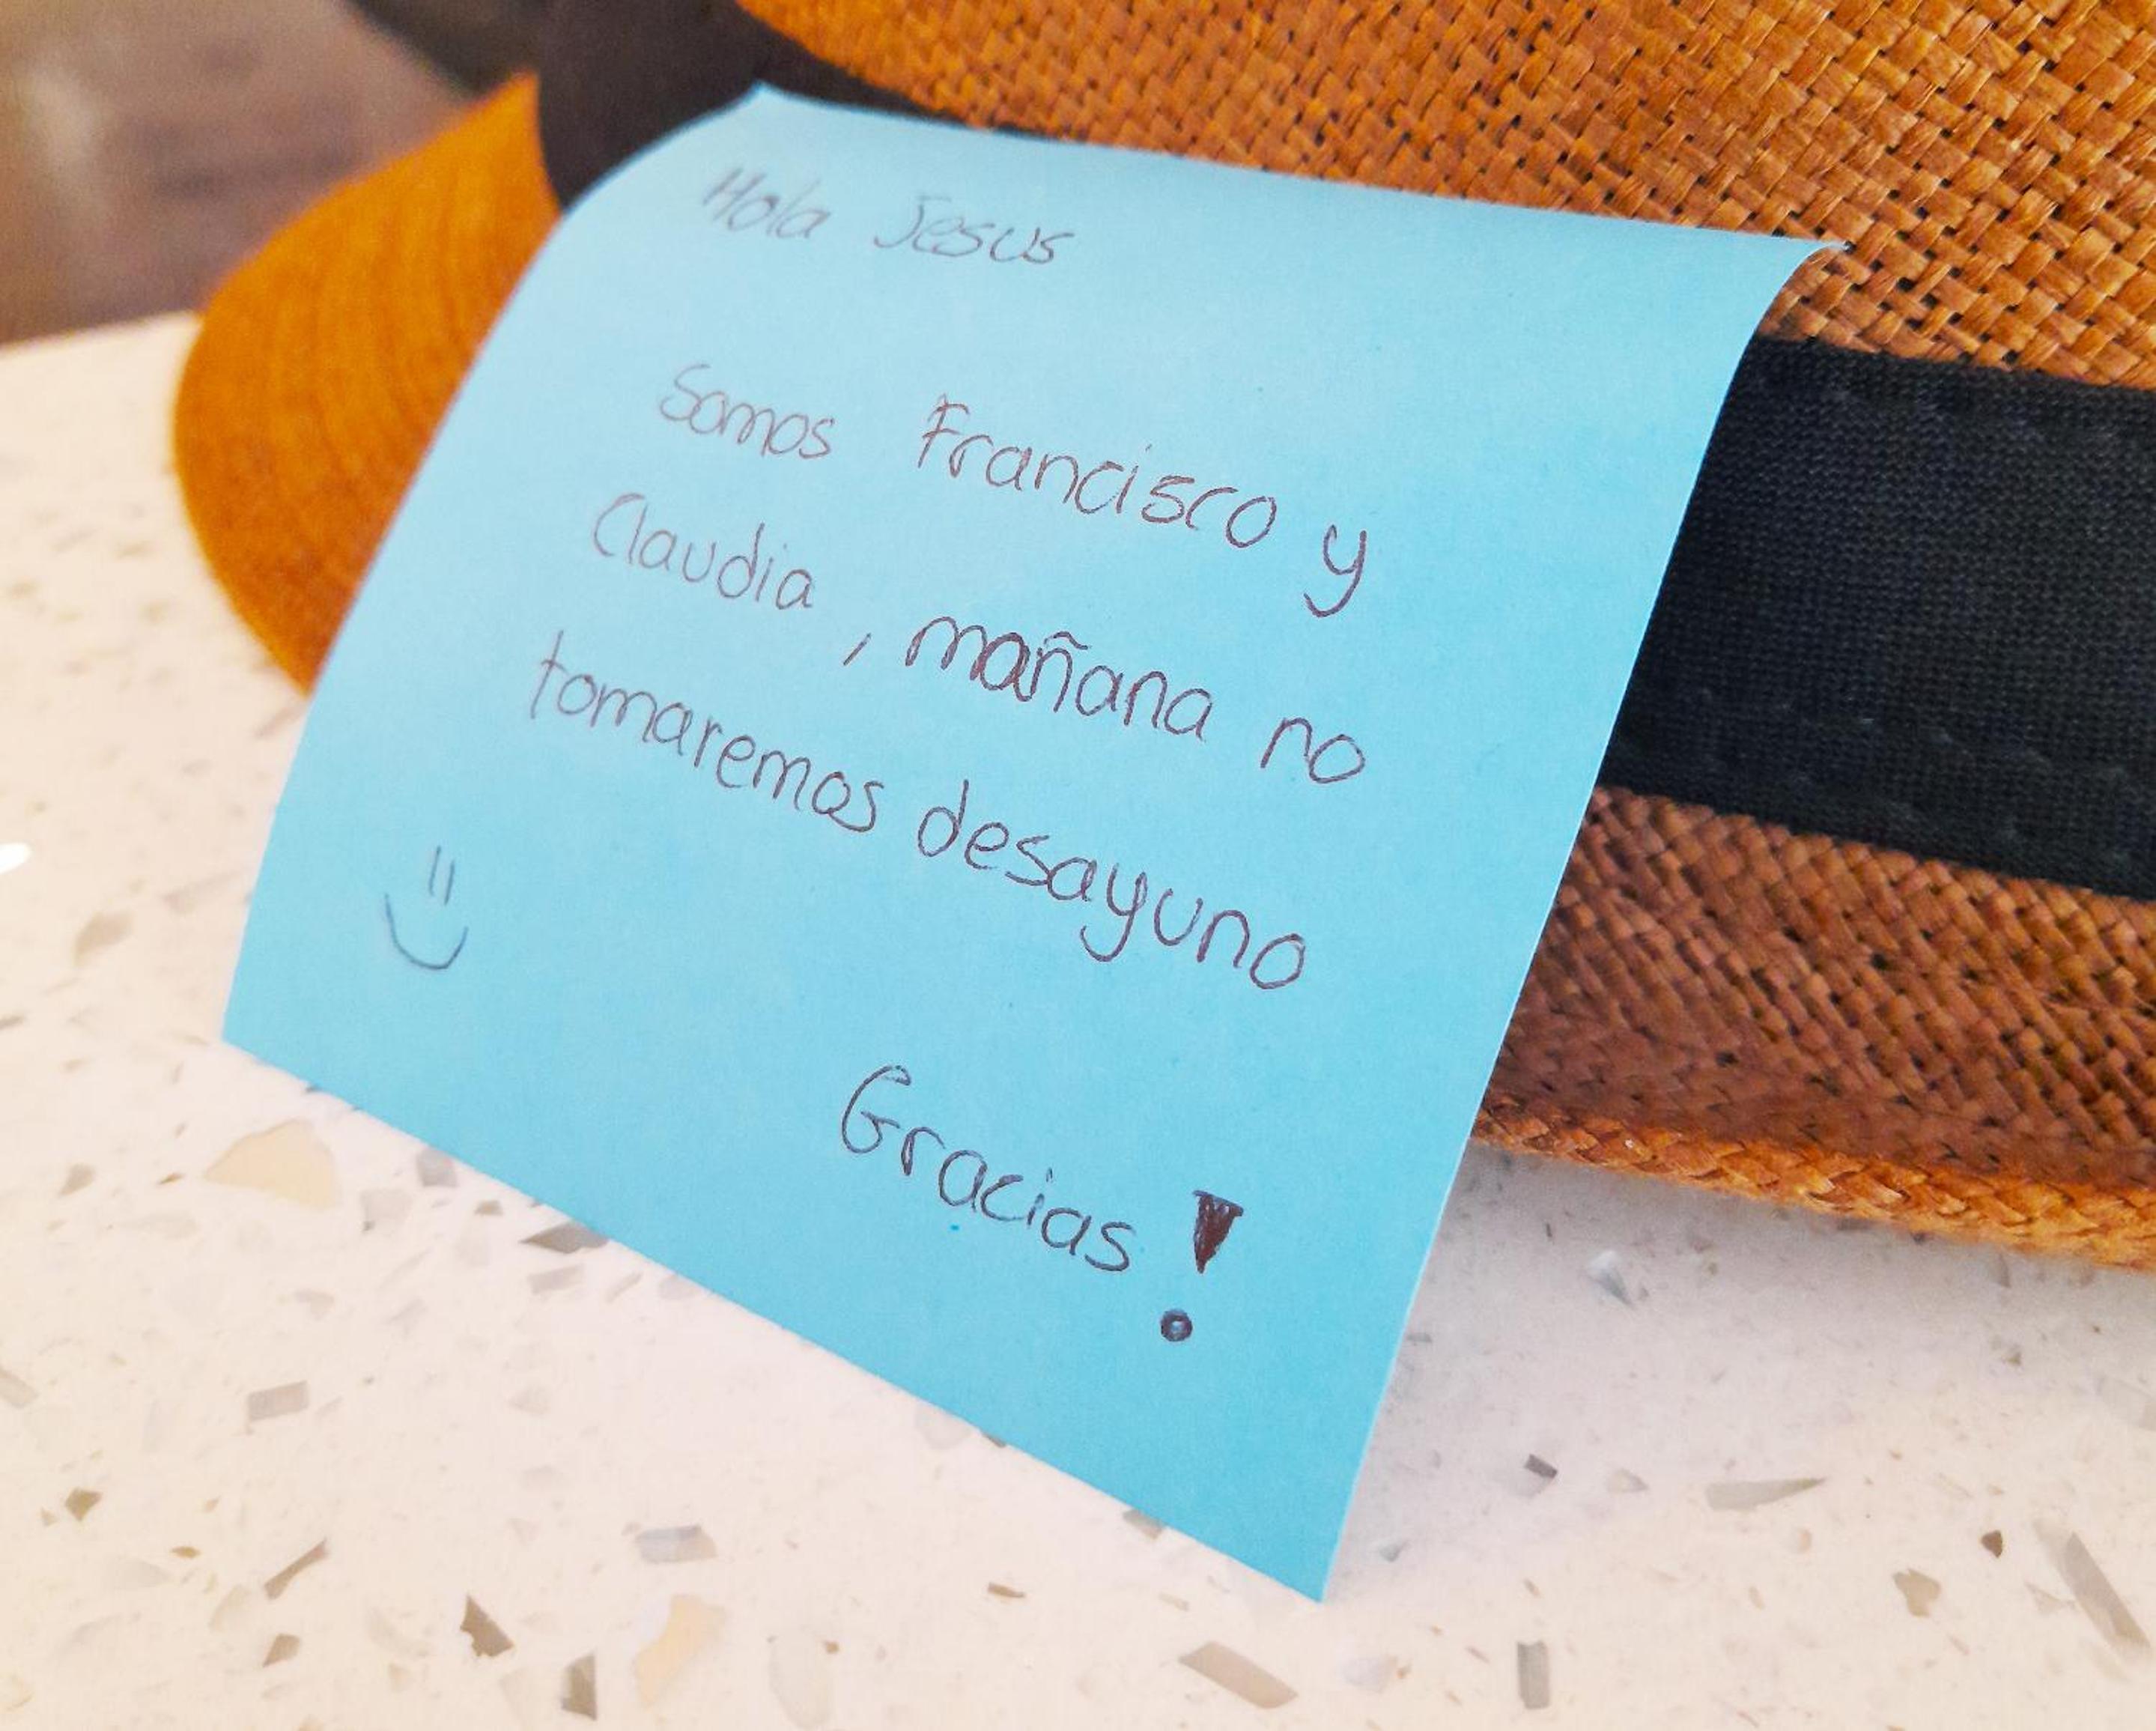 Hola Jesus
Somos Francisco y
Claudia, mañana no
tomaremos desayuno
Gracias!